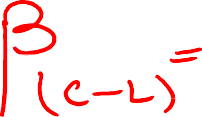 β(c-L)=